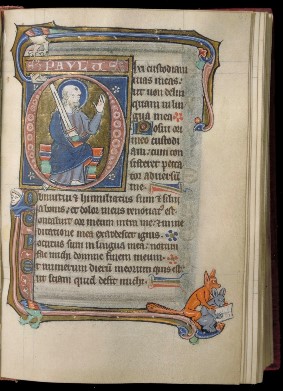 PAVLVS
Dixi custodiam
uias meas:
ut non delin
quam in lin
gua mea
Posui ori
meo custodi
am: cum con
sisteret pecca
tor aduersum
me
Obmutui et humiliatus sum et silui
a bonis: et dolor meus renouatus est
Concaluit cor meum intra me: et in me
ditatione mea exardescet ignis
Locutus sum in lingua mea: notum
fac michi domine finem meum
Et numerum dierum meorum quis est:
ut sciam quid desit michi